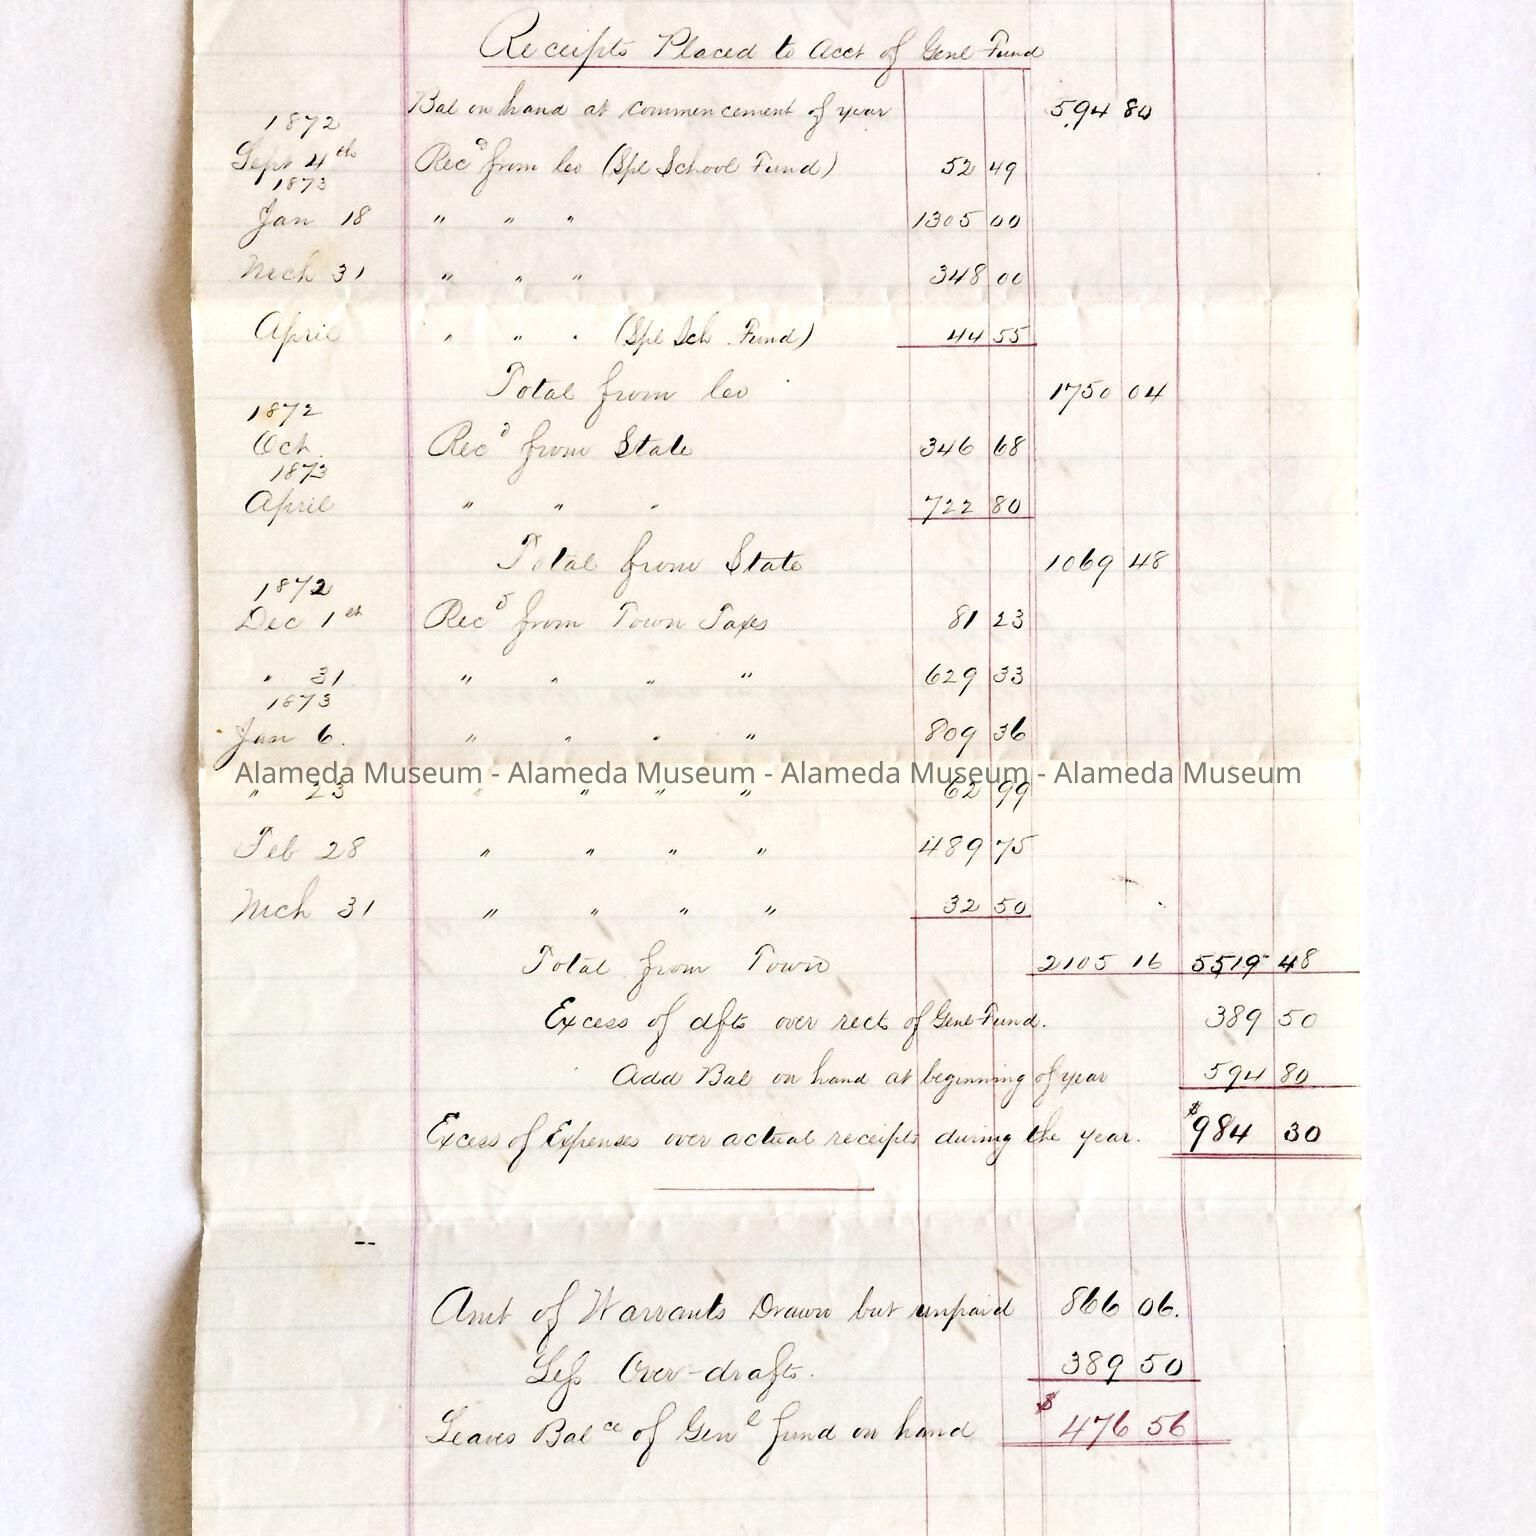 Receipts Placed to Acct of Genl Fund
Bal on hand at commencement of year 594 80
1872
Sept 4th Recd from Co (Spl School Fund) 52 49
1873
Jan 18 " " " 1305 00
Mch 31 " " " 348 00
April " " " (Spl Sch. Fund) 44 55
Total from Co 1750 04
1872
Oct. Recd from State 346 68
1873
April " " " 722 80
Total from State 1069 48
1872
Dec 1st Recd from Town Taxes 81 23
" 31 " " " " 629 33
1873
Jan 6. " " " " 809 36
Alameda Museum - Alameda Museum - Alameda Museum - Alameda Museum
" 23 " " " " 62 99
Feb 28 " " " " 489 75
Mch 31 " " " " 32 50
Total from Town 2105 16 5519 48
Excess of dfts over rects of Genl Fund. 389 50
Add Bal on hand at beginning of year 594 80
Excess of Expenses over actual receipts during the year. $984 30
--
Amt of Warrants Drawn but unpaid 866 06.
Less Over-drafts. 389 50
Leaves Balce of Genl fund on hand $476 56